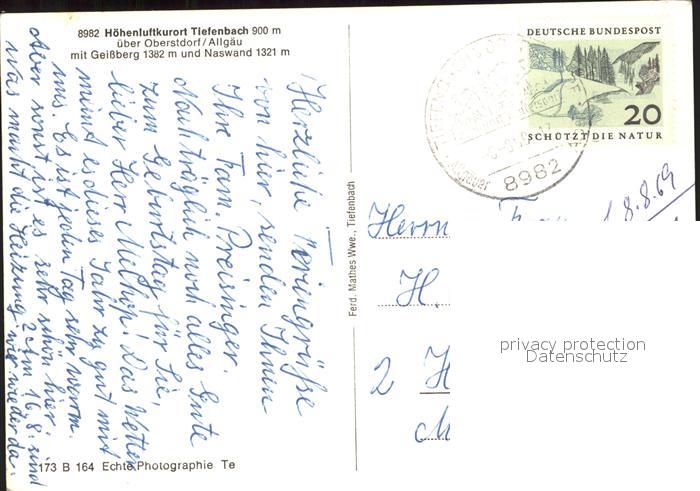 8982 Höhenluftkurort Tiefenbach 900 m
über Oberstdorf/Allgäu
mit Geißberg 1382 m und Naswand 1321 m
Herzliche Feriengrüße
von hier, senden Ihnen
Ihre Fam. Preisinger.
Nachträglich noch alles Gute
zum Geburtstag für Sie,
lieber Herr Melhop! Das Wetter
meint es dieses Jahr zu gut mit
uns. Es ist jeden Tag sehr warm.
Aber sonst ist es sehr schön hier.
Was macht die Heizung? Am 16.8. sind
wir wieder da.
173 B 164 Echte Photographie Te
Ferd. Mathes Wwe., Tiefenbach
DEUTSCHE BUNDESPOST
20
SCHÜTZT DIE NATUR
8982
8.8.69
Herrn
H.
2 H
privacy protection
Datenschutz